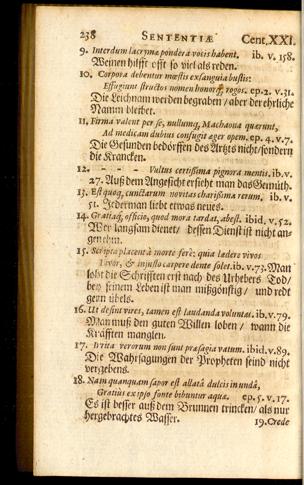 238 SENTENTIÆ Cent.XXI.
9. Interdum lacrymæ pondera vocis habent. ib. v. 158.
Weinen hilfft offt so viel als reden.
10. Corpora debentur mœstis exsanguia bustis:
Effugiunt structos nomen honorq; rogos. ep. 2. v. 31.
Die Leichnam werden begraben / aber der ehrliche
Namm bleibet.
11. Firma valent per se, nullumq; Machaona quærunt,
Ad medicam dubius confugit æger opem. ep. 4. v. 7.
Die Gesunden bedörffen des Artzts nicht / sondern
die Krancken.
12. - - - Vultus certissima pignora mentis. ib. v.
27. Auß dem Angesicht ersieht man das Gemüth.
13. Est quoq; cunctarum novitas charissima rerum. ib. v.
51. Jederman liebt etwas neues.
14. Gratiaq; officio, quod mora tardat, abest. ibid. v. 52.
Wer langsam dienet / dessen Dienst ist nicht an-
genehm.
15. Scripta placent à morte ferè: quia lædere vivos
Livor, & injusto carpere dente solet. ib. v. 73. Man
lobt die Schrifften erst nach des Urhebers Tod /
bey seinem Leben ist man mißgönstig / und redt
gern übels.
16. Ut desint vires, tamen est laudanda voluntas. ib. v. 79.
Man muß den guten Willen loben / wann die
Kräfften manglen.
17. Irrita verorum non sunt præsagia vatum. ibid. v. 89.
Die Wahrsagungen der Propheten seind nicht
vergebens.
18. Nam quanquam sapor est allatâ dulcis in undâ,
Gratiùs ex ipso fonte bibuntur aquæ. ep. 5. v. 17.
Es ist besser auß dem Brunnen trincken / als nur
hergebrachtes Wasser.
19. Crede